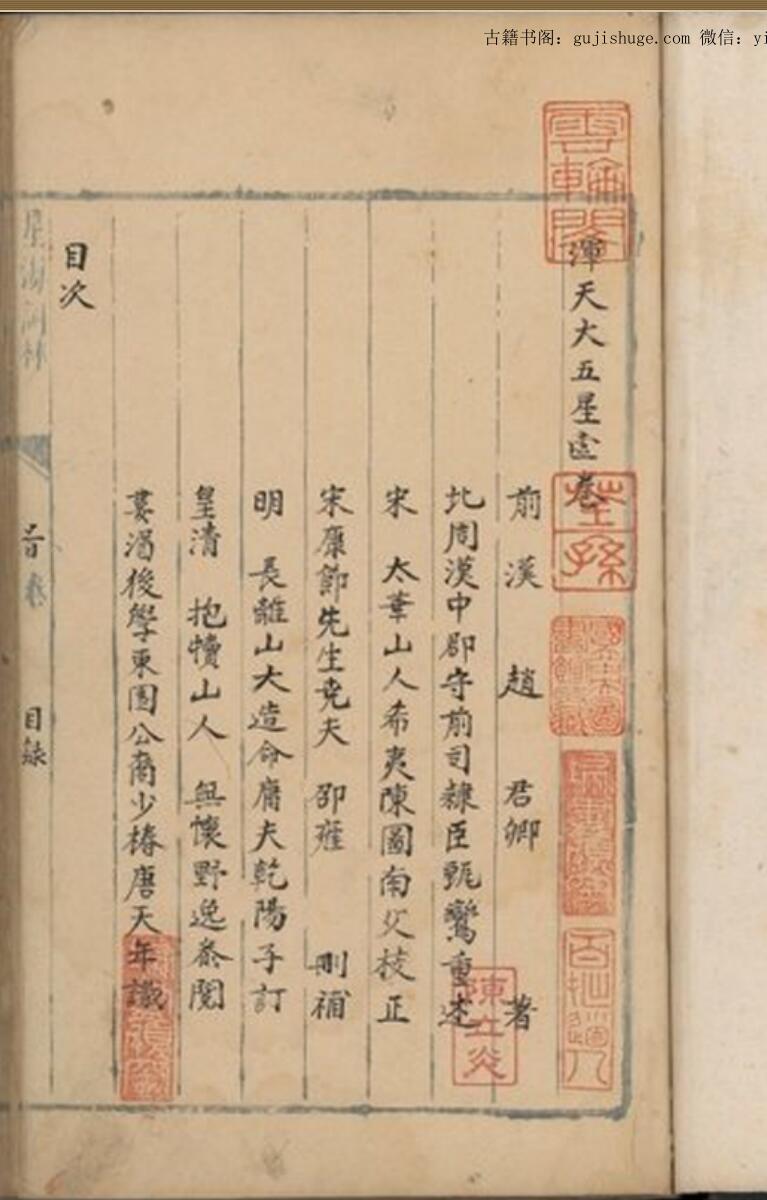 古籍书阁：gujishuge.com 微信：yi
渾天大五星壹卷
前漢 趙 君卿 著
北周漢中郡守前司隸臣甄鸞重述
宋 太華山人希夷陳圖南父校正
宋康節先生堯夫 邵雍 刪補
明 長離山大造命庸夫乾陽子訂
皇清 抱犢山人 無懷野逸叅閱
後學東園公裔少椿唐天年識
目次
目錄
雲輪閣
荃孫
陳立炎